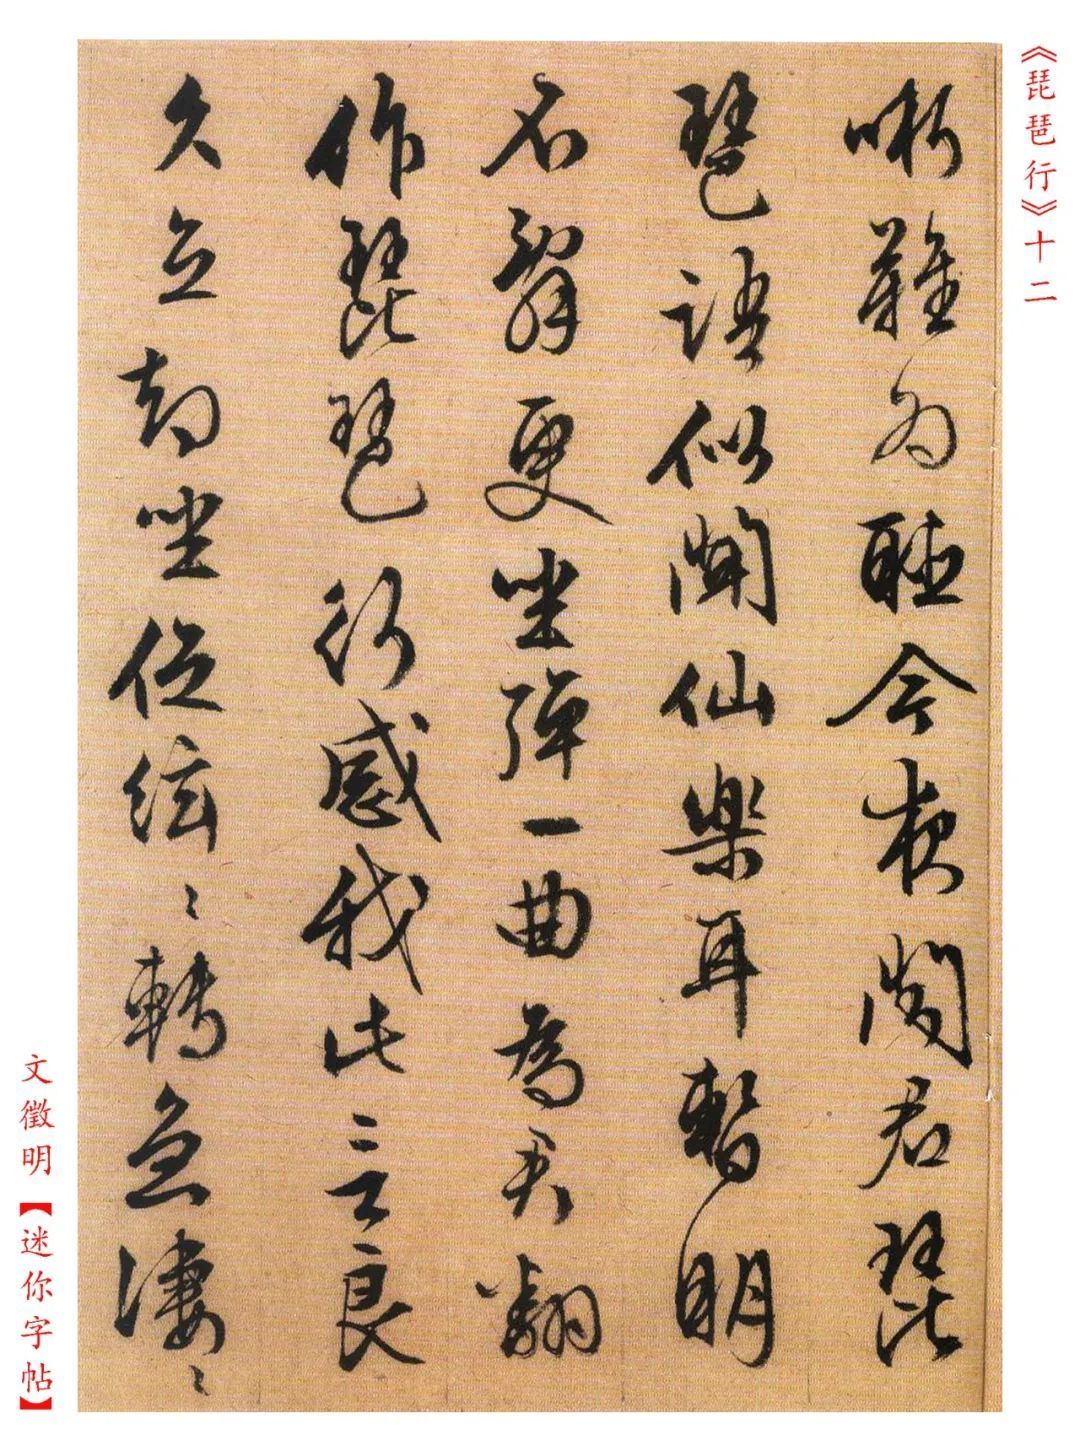 《琵琶行》十二
哳難為聽今夜聞君琵
琶語似聞仙樂耳暫明
不辭更坐彈一曲為君翻
作琵琶行感我此言良
久立却坐促絃〻轉急淒〻
文徵明【迷你字帖】